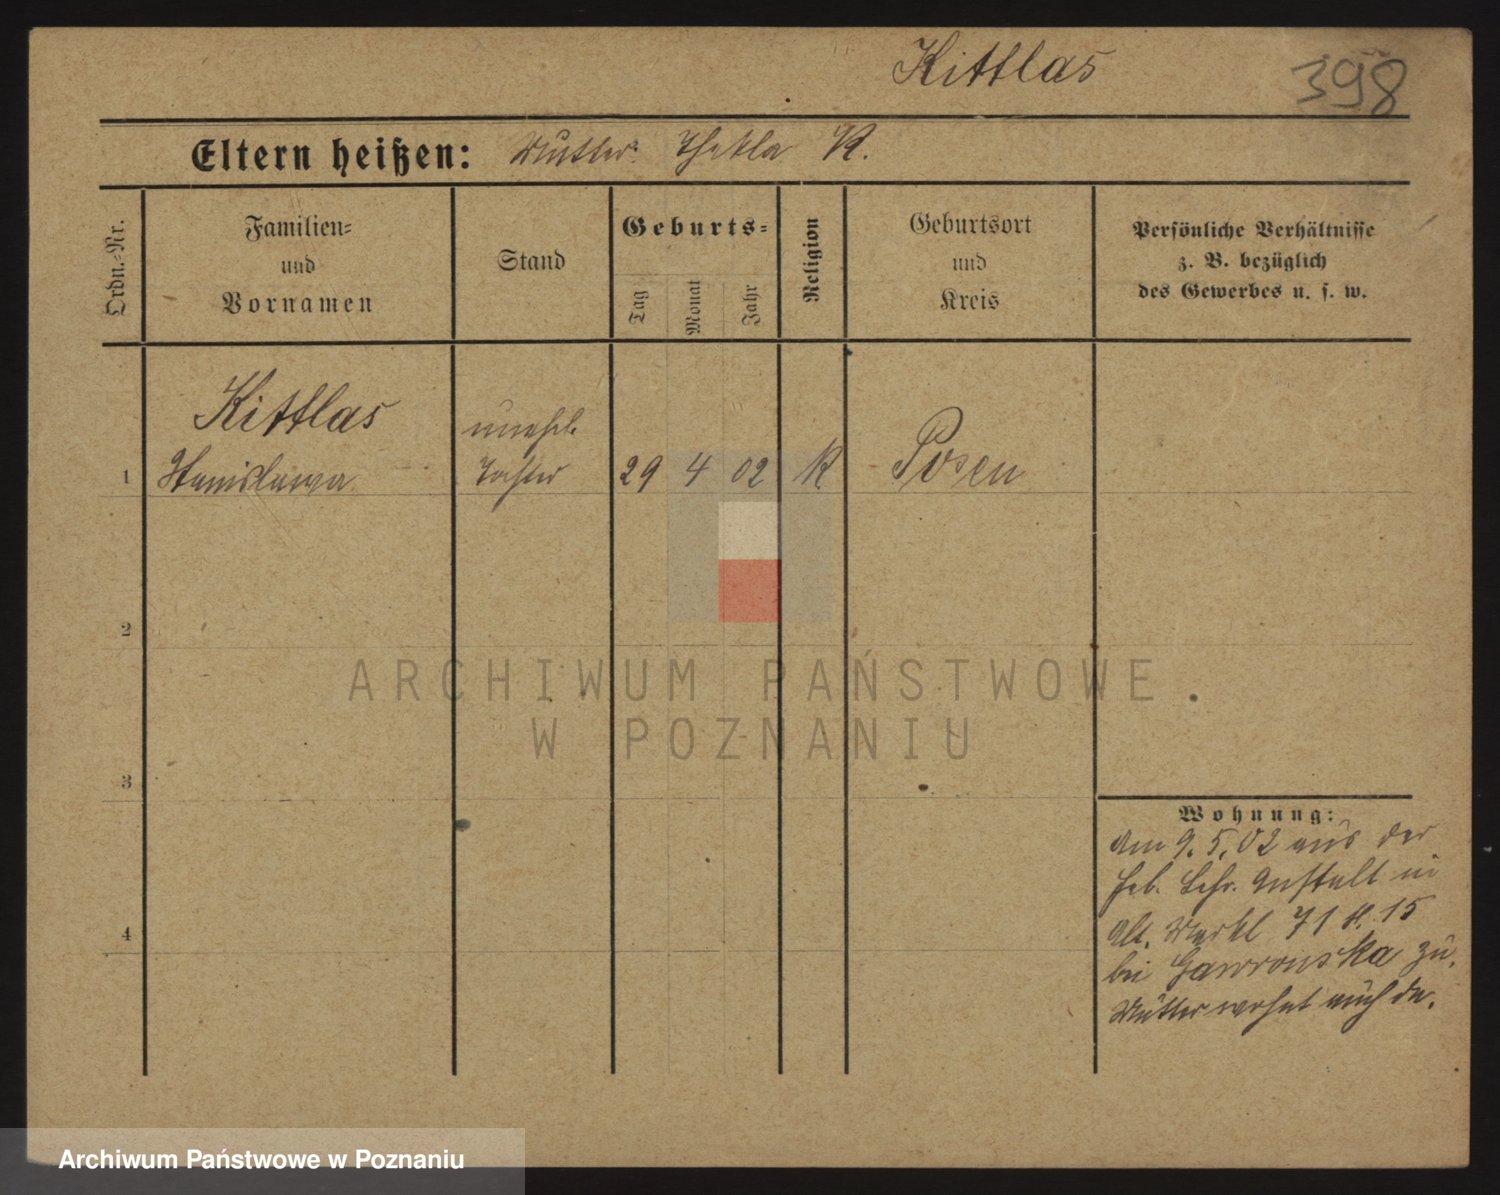 Kittlas
398
Eltern heißen: Mutter: Thekla K.
Ordn.-Nr.
Familien-
und
Vornamen
Stand
Geburts-
Tag
Monat
Jahr
Religion
Geburtsort
und
Kreis
Persönliche Verhältnisse
z. B. bezüglich
des Gewerbes u. s. w.
Kittlas unehel.
1 Stanislawa Tochter 29 4 02 K Posen
2
ARCHIWUM PAŃSTWOWE
W POZNANIU
3
Wohnung:
Am 9.5.02 aus der
Heb. Lehr. Anstalt in
Alt. Markt 71 H. 15
bei Gawronska zu.
Mutter wohnt auch da.
4
Archiwum Państwowe w Poznaniu